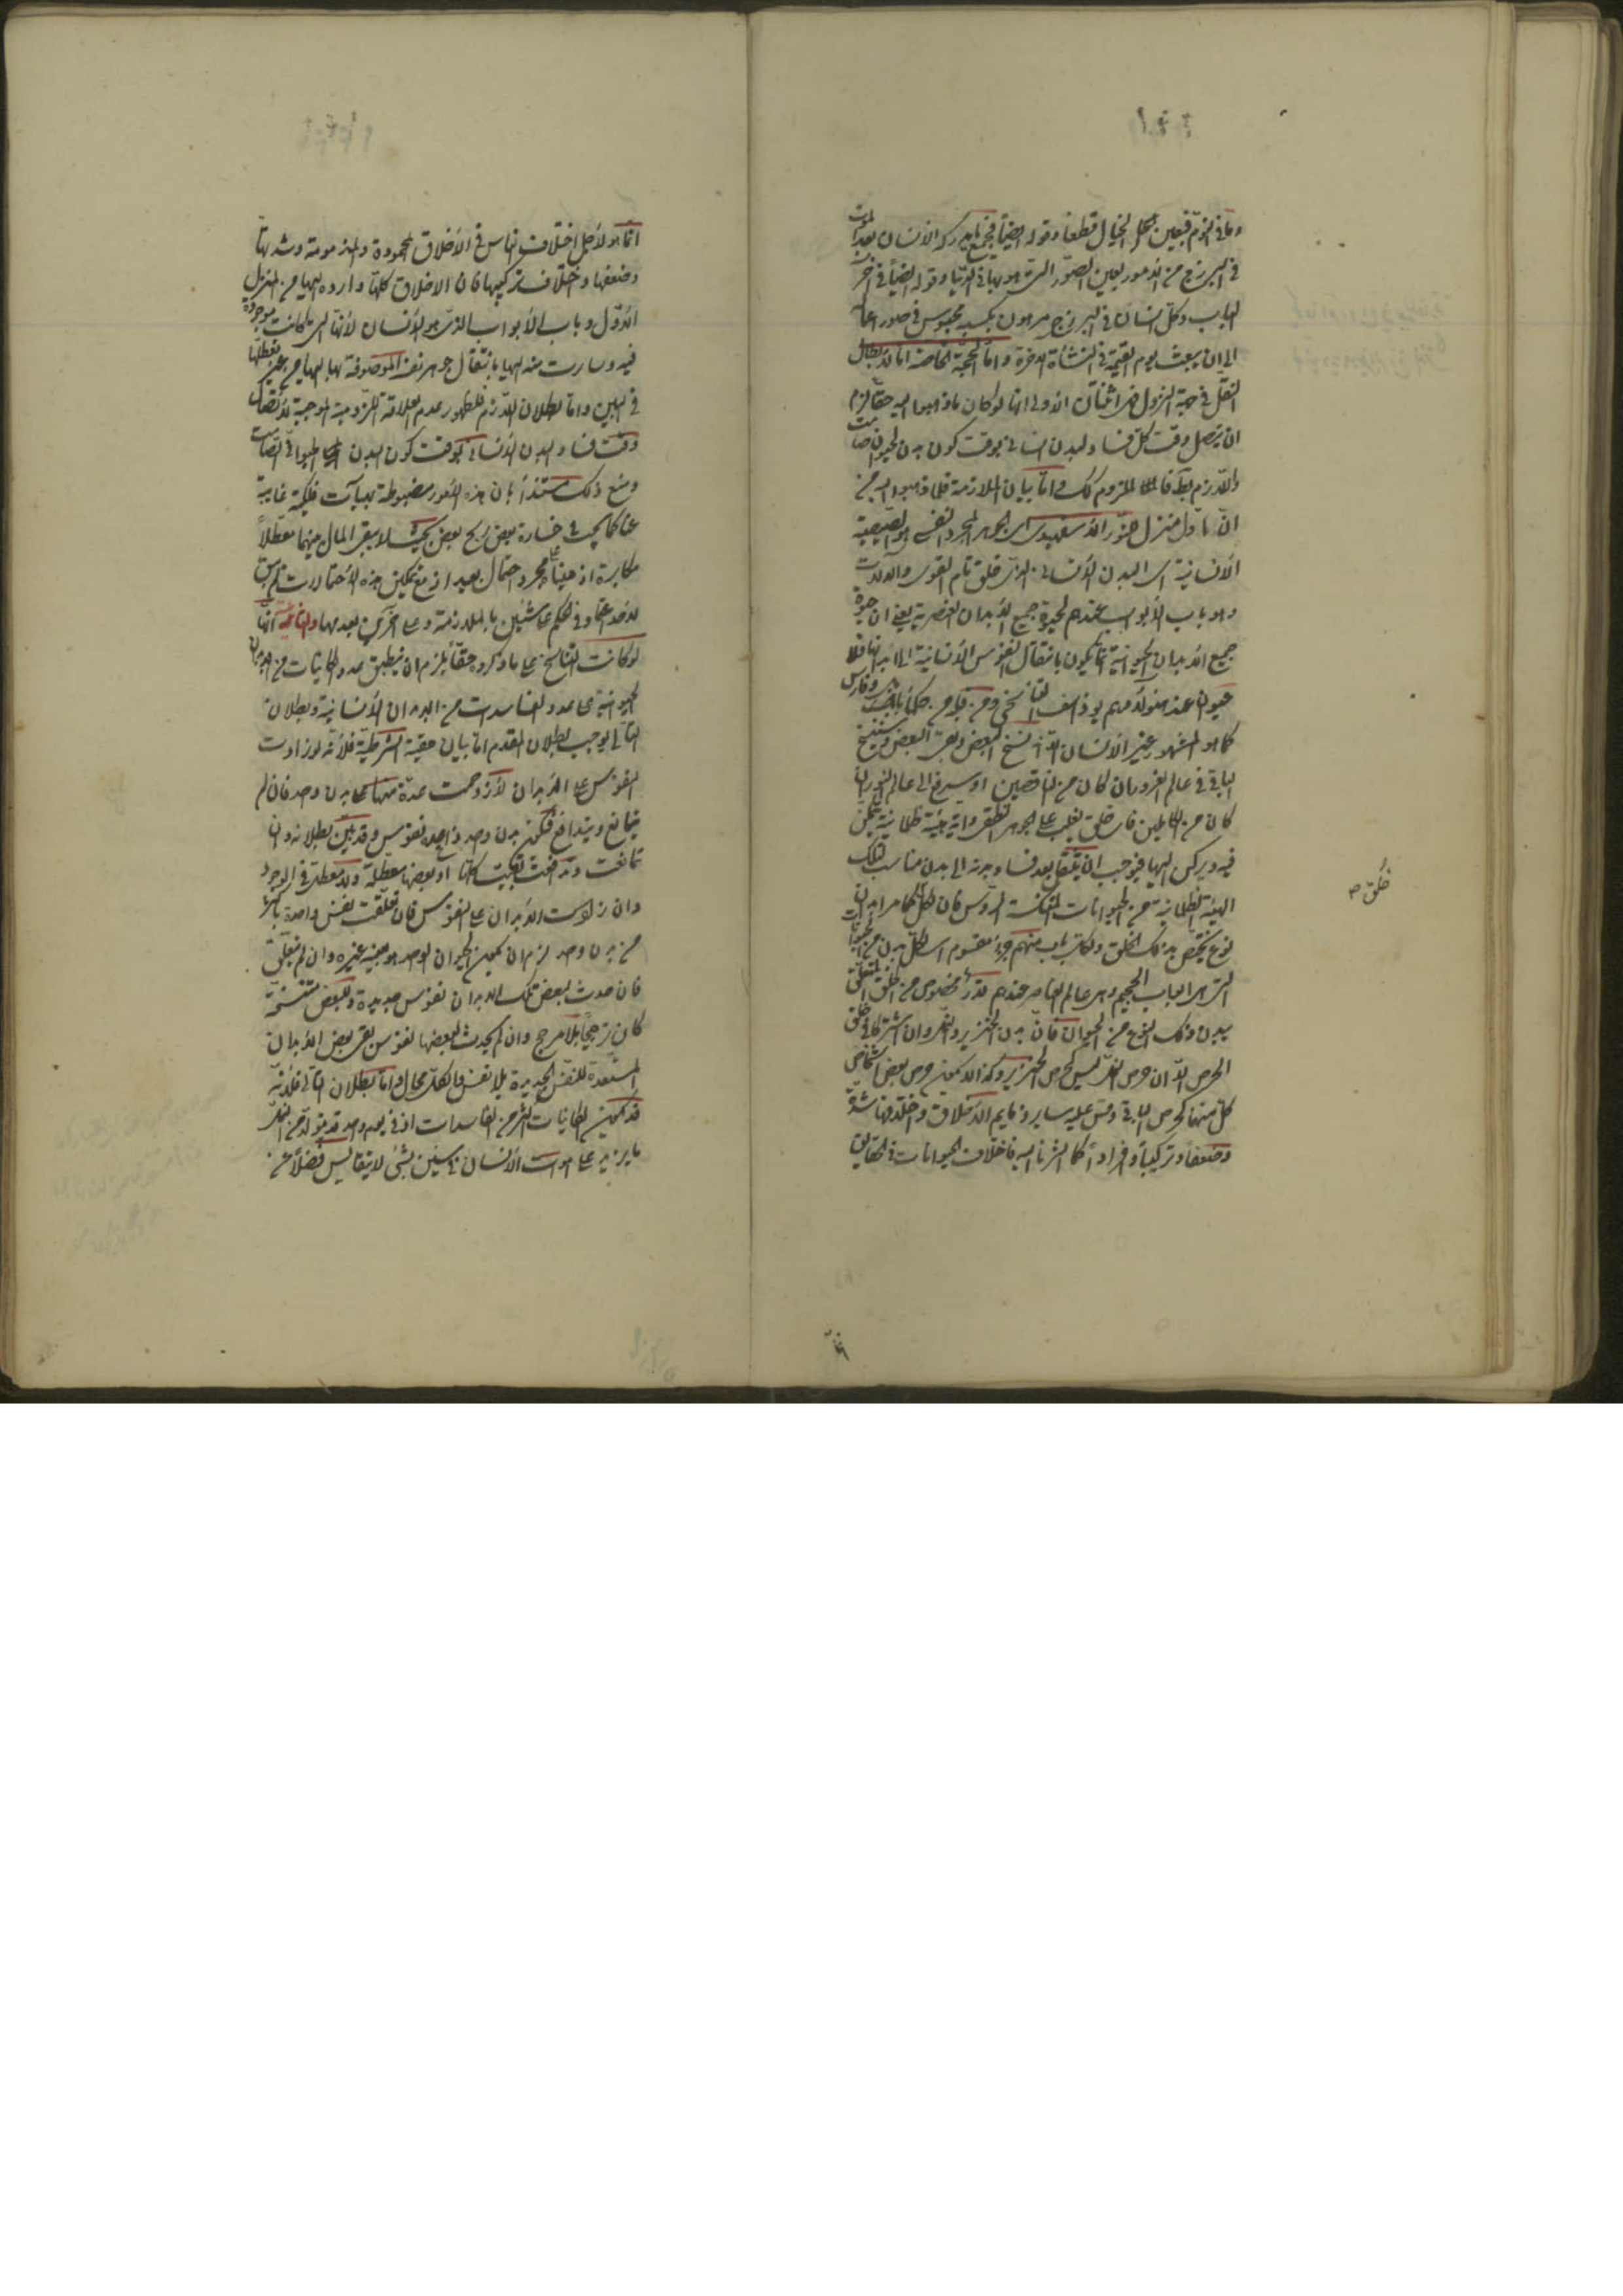 وما في النوم فبعين الخيال قطعا وقوله ايضا فجميع ما يدركه الانسان بعد الموت
في البرزخ من الامور بعين الصور التي هو بها في الدنيا وقوله ايضا في آخر
الباب وكل انسان في البرزخ مرهون بكسبه محبوس في صور اعماله
الى ان يبعث يوم القيمة في النشأة الاخرة واما الحجة الخاصة اما لابطال
النقل في جهة النزول فهي اثنتان الاولى انها لو كان ما ذهبوا اليه حقا لزم
ان يتصل وقت كل فساد لبدن انساني بوقت كون بدن لحيوان صامت
واللازم بط فالملزوم كك اما بيان الملازمة فلما ذهبوا اليه من
ان اول منزل النور الاسفهبدي اي الجوهر المجرد النفسي هو الصيصية
الانسانية اي البدن الانساني الذي خلق تام القوى والالات
وهو باب الابواب عندهم لحيوة جميع الابدان العنصرية يعني ان حيوة
جميع الابدان الحيوانية انما يكون بانتقال النفوس الانسانية الى ابدانها فلا
حيوان عند هؤلاء منهم يوذاسف التناسخي ومن قبله من حكماء بابل وفارس
كما هو المشهور غير الانسان الا انه نسخ البعض وبقى البعض وسينسخ
الباقي في عالم الغرور ان كان من الناقصين او سيرفع الى عالم النور ان
كان من الكاملين فاي خلق يغلب على الجوهر النطقي واية هيئة ظلمانية يتمكن
فيه ويركن اليها فيوجب ان ينتقل بعد فساد بدنه الى بدن مناسب لتلك
الهيئة الظلمانية من الحيوانات المنتكسة الرؤس فان لكل خلق ابدان
نوع يختص بذلك الخلق ولكل باب منهم جزء مقسوم اي لكل بدن من الحيوانات
التي هي ابواب الجحيم وهي عالم العناصر عندهم قدر مخصوص من الخلق المتعلق
ببدن ذلك النوع من الحيوان فان بدن الخنزير والنمل وان اشتركا في خلق
الحرص الا ان حرص النمل ليس كحرص الخنزير وكذا لا يكون حرص بعض اشخاص
كل منهما كحرص الباقي وقس عليه سائر ذمايم الاخلاق واختلافها شدة
وضعفا وتركيبا وافرادا كما اشرنا اليه فاختلاف الحيوانات في الحقايق
خلق صح
انما هو لاجل اختلاف الناس في الاخلاق المحمودة والمذمومة وشدتها
وضعفها واختلاف تركيبها فان الاخلاق كلها واردة اليها من المنزل
الاول وباب الابواب الذي هو الانسان لانها التي كانت موجودة
فيه وسارت منه اليها بانتقال جوهر نفسه الموصوفة بها اليها من غير تعطلها
في البين واما بطلان اللازم فلظهور عدم العلاقة اللزومية الموجبة لاتصال
وقت فساد البدن الانساني بوقت كون البدن الحيواني الصامت
ومنع ذلك مستندا بان هذه الامور مضبوطة بهيآت فلكية غايبة
عنا كما يجب في خسارة بعض ربح بعض بحيث لا يبقى المال بينهما معطلا
مكابرة اذ مبناه على مجرد احتمال بعيد اذ مع تمكين هذه الاحتمالات لم يبق
لاحد اعتماد في الحكم على شيئين بالملازمة وعلى آخرين بعدمها والثانية انها
لو كانت التناسخ على ما ذكروه حقا لزم ان ينطبق عدد الكائنات من الابدان
الحيوانية على عدد الفاسدات من البدان الانسانية وبطلان
التالي يوجب بطلان المقدم اما بيان حقية الشرطية فلانه لو زادت
النفوس على الابدان لازدحمت عدة منها على بدن واحد فان لم
يتمانع ويتدافع فيكون لبدن واحد نفوس وقد تبين بطلانه وان
تمانعت وتدافعت بقيت كلها او بعضها معطلة ولا معطل في الوجود
وان زادت الابدان على النفوس فان تعلقت نفس واحدة باكثر
من بدن واحد لزم ان يكون الحيوان الواحد هو بعينه غيره وان لم يتعلق
فان حدث لبعض تلك الابدان نفوس جديدة وللبعض مستنسخة
كان ترجيحا بلا مرجح وان لم يحدث لبعضها نفوس بقى بعض الابدان
المستعدة للنفس الجديدة بلا نفس والكل محال واما بطلان التالي فلانه
قد يكون الكائنات اكثر من الفاسدات اذ في يوم واحد قد يتولد من النمل
ما يزيد على اموات الانسان في سنين بشئ لا يتقايس فضلا عن